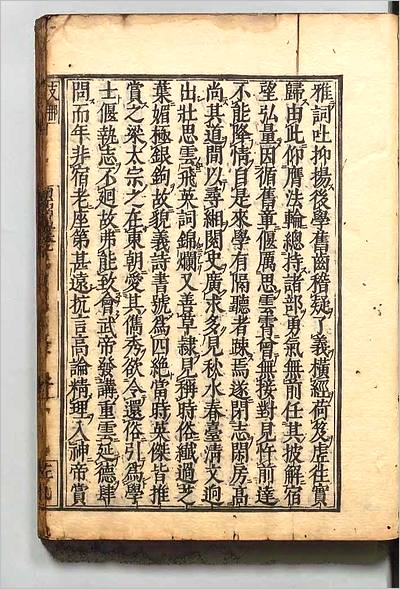 雅詞吐抑揚後學舊齒稽疑了義橫經荷笈虛往實
歸由此仰膺法輪總持諸部勇氣無前任其披解宿
望弘量因循舊章偃厲思雲霄曾無接對見忤前達
不能降情自是來學有隔聽者疎焉遂閉志閑房高
尚其道間以尋緗閱史廣求多見秋水春臺清文迥
出壯思雲飛英詞錦爛又善草隸見稱時俗纖過芝
葉媚極銀鉤故貌義詩書號爲四絕當時英傑皆推
賞之梁太宗之在東朝愛其儁秀欲令還俗引爲學
士偃執志不迴故弗能致會武帝發講重雲延德肆
問而年非宿老座第甚遠抗言高論精理入神帝賞
支那